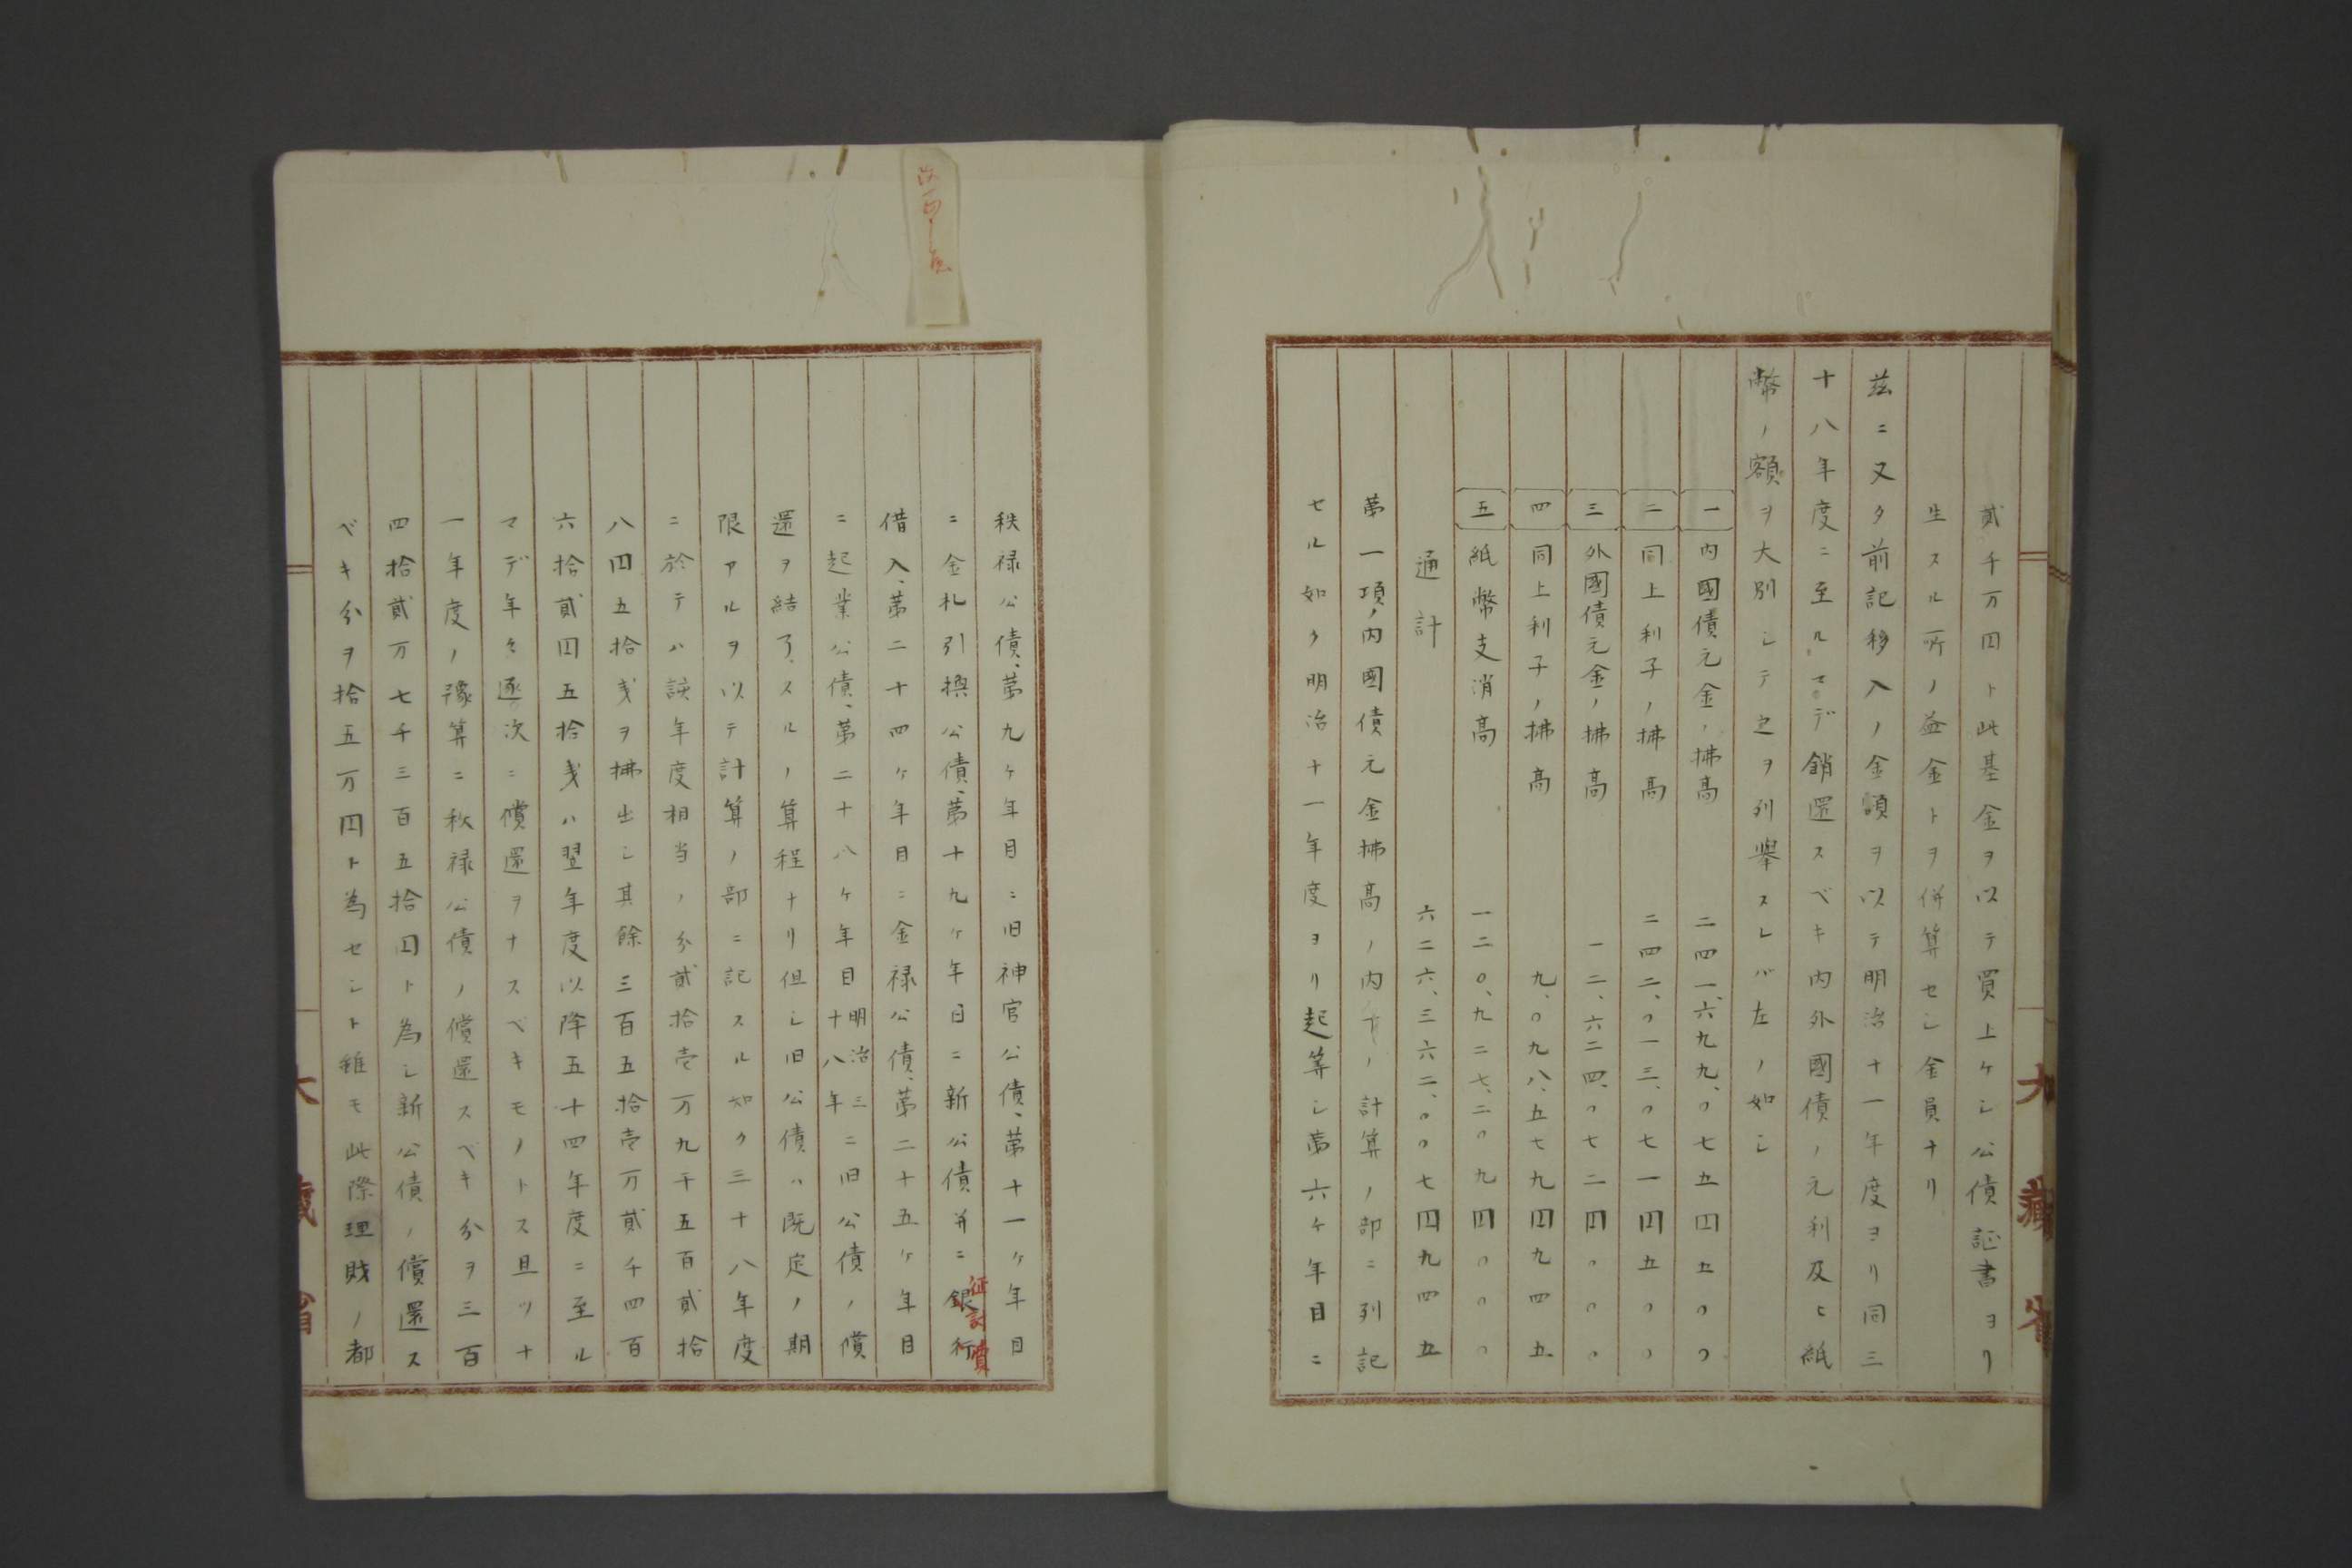 貳千万円ト此基金ヲ以テ買上ケシ公債証書ヨリ
生スル所ノ益金トヲ併算セシ金員ナリ
茲ニ又タ前記移入ノ金額ヲ以テ明治十一年度ヨリ同三
十八年度ニ至ルマデ銷還スベキ内外國債ノ元利及ヒ紙
幣ノ額ヲ大別シテ之ヲ列擧スレバ左ノ如シ
一 内國債元金ノ拂高 二四一、六九九、〇七五円五〇〇
二 同上利子ノ拂高 二四二、〇一三、〇七一円五〇〇
三 外國債元金ノ拂高 一二、六二四、〇七二円〇〇〇
四 同上利子ノ拂高 九、〇九八、五七九円九四五
五 紙幣支消高 一二〇、九二七、二〇九円〇〇〇
通計 六二六、三六二、〇〇七円九四五
第一項ノ内國債元金拂高ノ内ノ計算ノ部ニ列記
セル如ク明治十一年度ヨリ起筭シ第六ケ年目ニ
秩禄公債、第九ケ年目ニ旧神官公債、第十一ケ年目
ニ金札引換公債、第十九ケ年目ニ新公債并ニ銀行
征討費
借入、第二十四ケ年目ニ金禄公債、第二十五ケ年目
ニ起業公債、第二十八ケ年目明治三十八年ニ旧公債ノ償
還ヲ結了スルノ算程ナリ但シ旧公債ハ既定ノ期
限アルヲ以テ計算ノ部ニ記スル如ク三十八年度
ニ於テハ該年度相当ノ分貳拾壱万九千五百貳拾
八円五拾戋ヲ拂出シ其餘三百五拾壱万貳千四百
六拾貳円五拾戋ハ翌年度以降五十四年度ニ至ル
マデ年々逐次ニ償還ヲナスベキモノトス且ツ十
一年度ノ豫算ニ秩禄公債ノ償還スベキ分ヲ三百
四拾貳万七千三百五拾円ト為シ新公債ノ償還ス
ベキ分ヲ拾五万円ト為セシト雖モ此際理財ノ都
大藏省